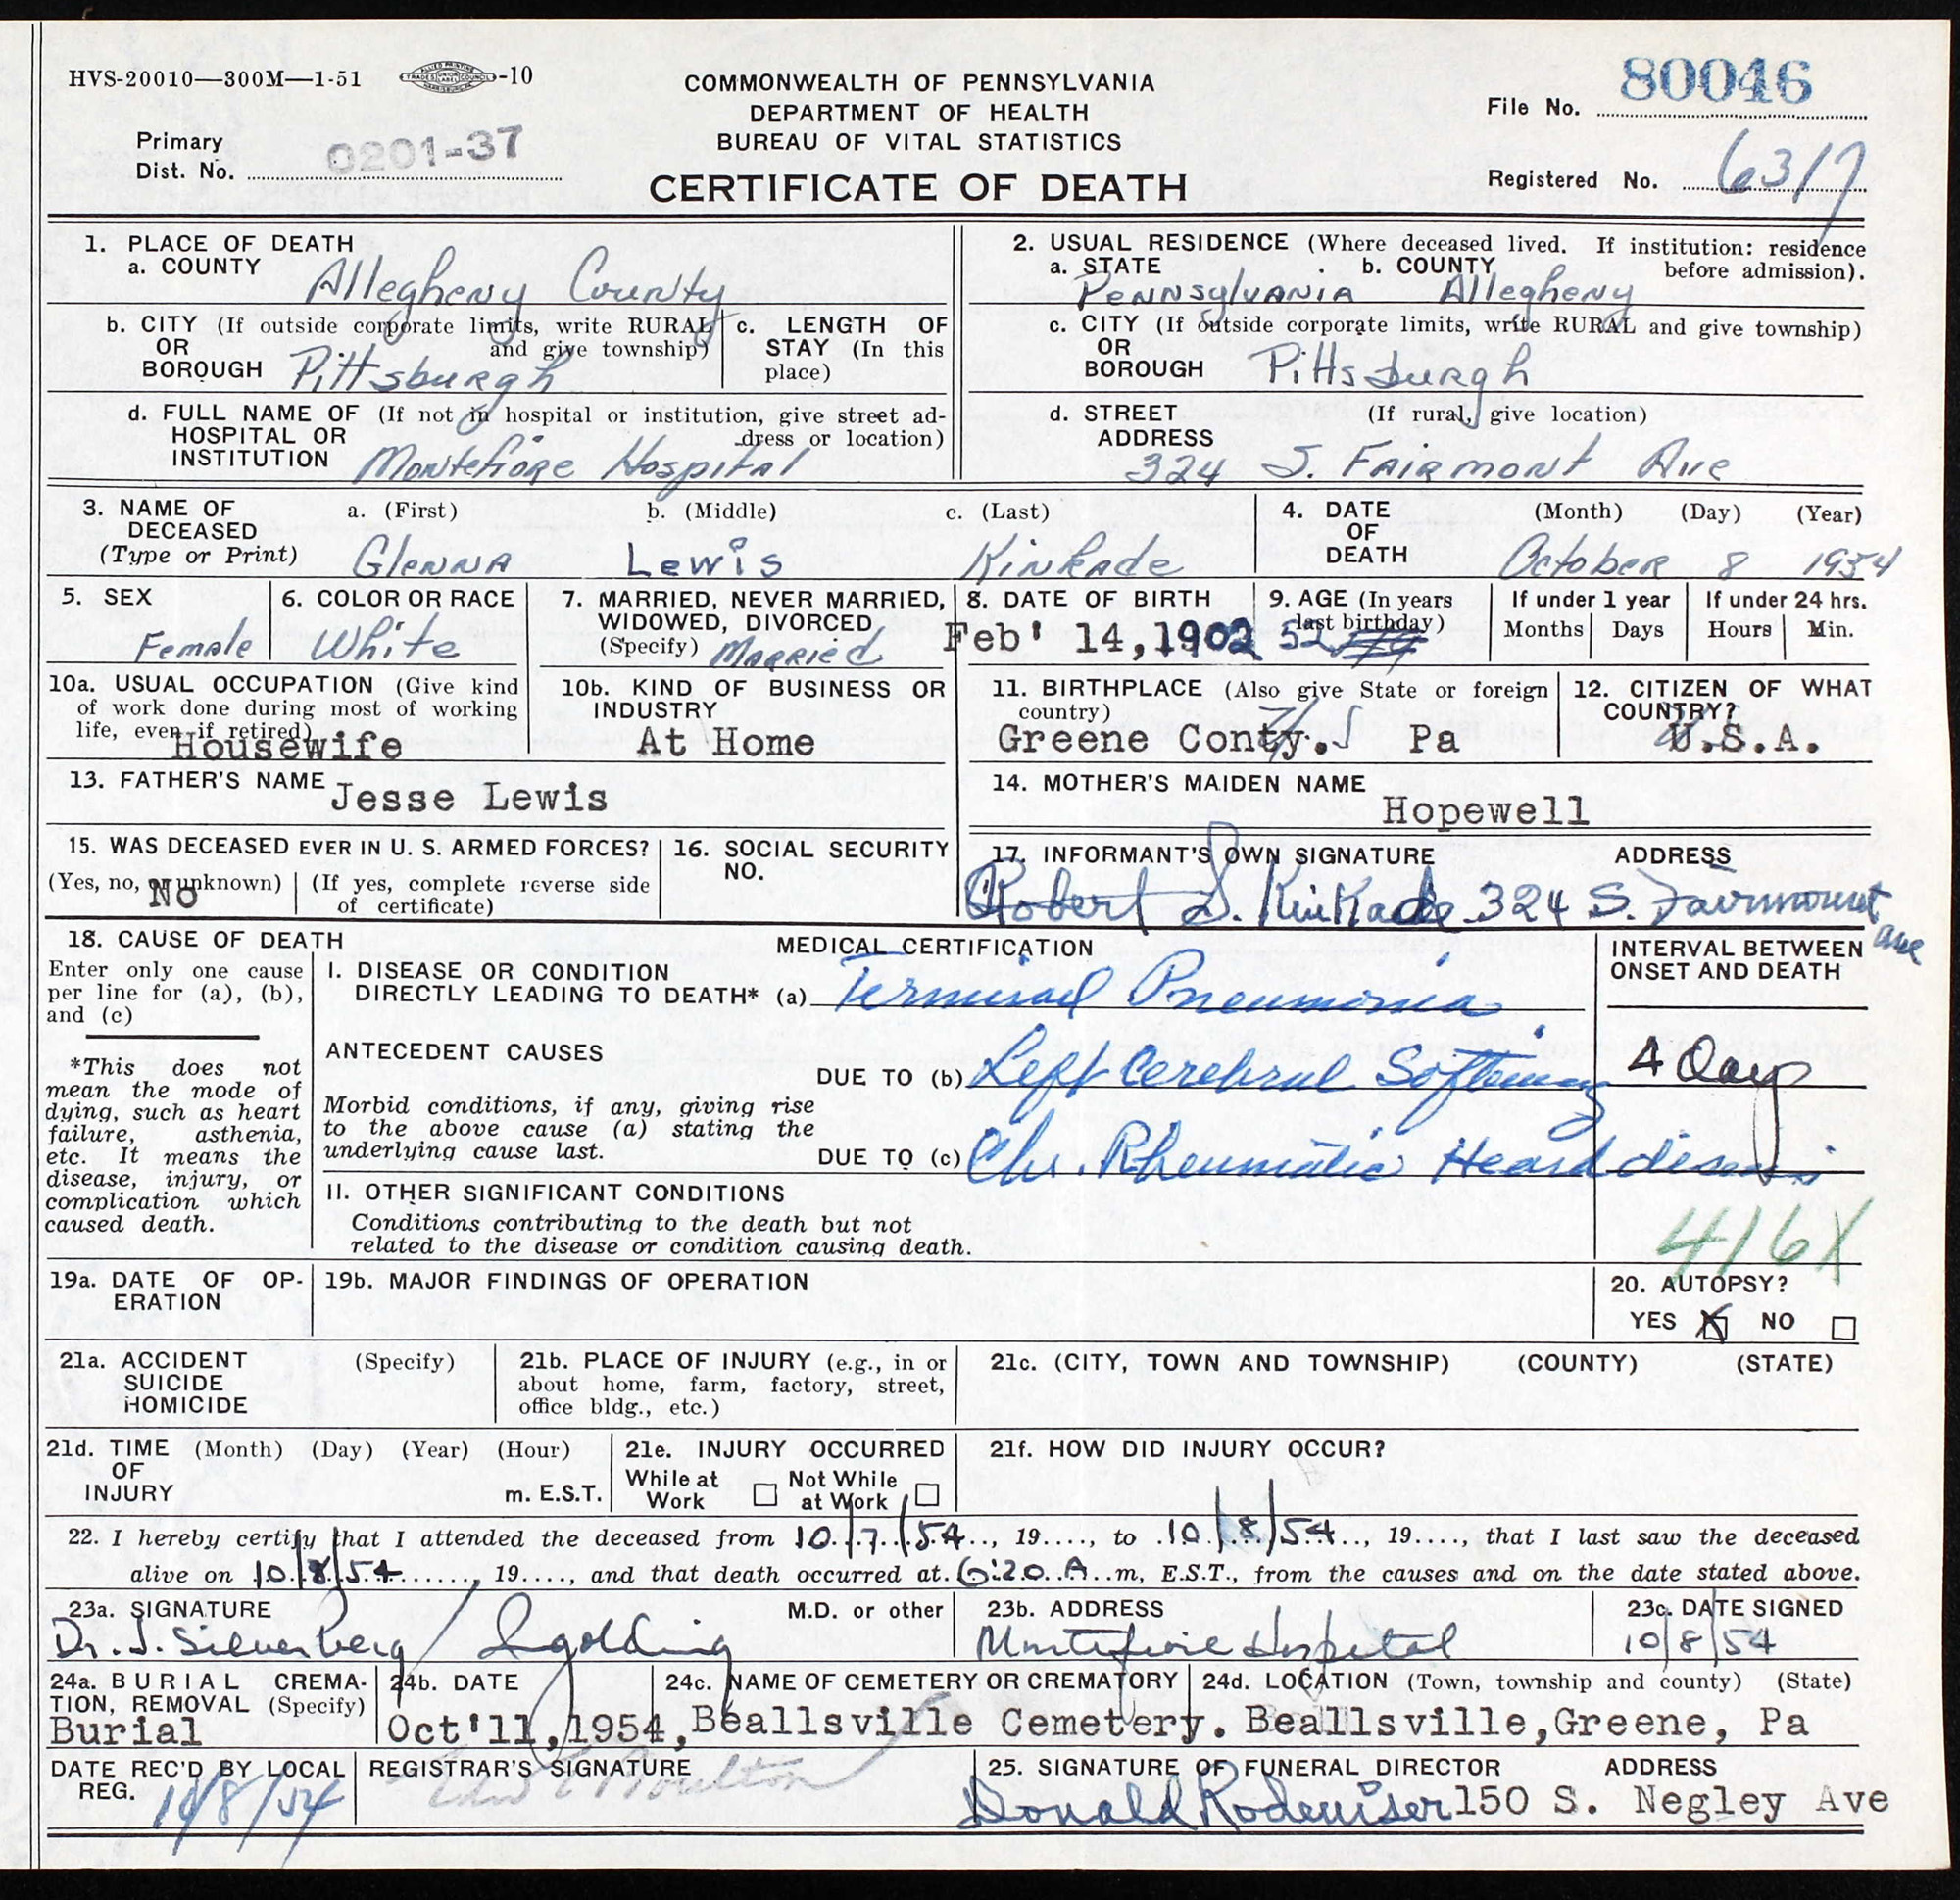 HVS-20010—300M—1-51 -10
COMMONWEALTH OF PENNSYLVANIA
DEPARTMENT OF HEALTH
BUREAU OF VITAL STATISTICS
CERTIFICATE OF DEATH
File No. 80046
Primary
Dist. No. 0201-37
Registered No. 6317
1. PLACE OF DEATH
a. COUNTY Allegheny County
b. CITY (If outside corporate limits, write RURAL
OR and give township)
BOROUGH Pittsburgh
c. LENGTH OF
STAY (In this
place)
d. FULL NAME OF (If not in hospital or institution, give street ad-
HOSPITAL OR dress or location)
INSTITUTION Montefiore Hospital
2. USUAL RESIDENCE (Where deceased lived. If institution: residence
a. STATE b. COUNTY before admission).
Pennsylvania Allegheny
c. CITY (If outside corporate limits, write RURAL and give township)
OR
BOROUGH Pittsburgh
d. STREET (If rural, give location)
ADDRESS
324 S. Fairmont Ave
3. NAME OF a. (First) b. (Middle) c. (Last)
DECEASED
(Type or Print) Glenna Lewis Kinkade
4. DATE (Month) (Day) (Year)
OF
DEATH October 8 1954
5. SEX
Female
6. COLOR OR RACE
White
7. MARRIED, NEVER MARRIED,
WIDOWED, DIVORCED
(Specify) Married
8. DATE OF BIRTH
Feb' 14,1902
9. AGE (In years
last birthday)
52
If under 1 year
Months Days
If under 24 hrs.
Hours Min.
10a. USUAL OCCUPATION (Give kind
of work done during most of working
life, even if retired)
Housewife
10b. KIND OF BUSINESS OR
INDUSTRY
At Home
11. BIRTHPLACE (Also give State or foreign
country)
Greene Conty. Pa
12. CITIZEN OF WHAT
COUNTRY?
U.S.A.
13. FATHER'S NAME
Jesse Lewis
14. MOTHER'S MAIDEN NAME
Hopewell
15. WAS DECEASED EVER IN U. S. ARMED FORCES?
(Yes, no, or unknown) (If yes, complete reverse side
No of certificate)
16. SOCIAL SECURITY
NO.
17. INFORMANT'S OWN SIGNATURE ADDRESS
Robert L. Kinkade 324 S. Fairmount
ave
18. CAUSE OF DEATH
Enter only one cause
per line for (a), (b),
and (c)
*This does not
mean the mode of
dying, such as heart
failure, asthenia,
etc. It means the
disease, injury, or
complication which
caused death.
MEDICAL CERTIFICATION
I. DISEASE OR CONDITION
DIRECTLY LEADING TO DEATH* (a) Terminal Pneumonia
ANTECEDENT CAUSES
DUE TO (b) Left Cerebral Softening
Morbid conditions, if any, giving rise
to the above cause (a) stating the
underlying cause last.
DUE TO (c) Chr. Rheumatic Heart disease
II. OTHER SIGNIFICANT CONDITIONS
Conditions contributing to the death but not
related to the disease or condition causing death.
INTERVAL BETWEEN
ONSET AND DEATH
4 Days
416X
19a. DATE OF OP-
ERATION
19b. MAJOR FINDINGS OF OPERATION
20. AUTOPSY?
YES X NO
21a. ACCIDENT (Specify)
SUICIDE
HOMICIDE
21b. PLACE OF INJURY (e.g., in or
about home, farm, factory, street,
office bldg., etc.)
21c. (CITY, TOWN AND TOWNSHIP) (COUNTY) (STATE)
21d. TIME (Month) (Day) (Year) (Hour)
OF
INJURY m. E.S.T.
21e. INJURY OCCURRED
While at Not While
Work at Work
21f. HOW DID INJURY OCCUR?
22. I hereby certify that I attended the deceased from 10/7/54, 19...., to 10/8/54, 19...., that I last saw the deceased
alive on 10/8/54, 19...., and that death occurred at 6:20 A.m, E.S.T., from the causes and on the date stated above.
23a. SIGNATURE M.D. or other
Dr. J. Silverberg /
23b. ADDRESS
Montefiore Hospital
23c. DATE SIGNED
10/8/54
24a. BURIAL CREMA-
TION, REMOVAL (Specify)
Burial
24b. DATE
Oct'11,1954,
24c. NAME OF CEMETERY OR CREMATORY
Beallsville Cemetery.
24d. LOCATION (Town, township and county) (State)
Beallsville,Greene, Pa
DATE REC'D BY LOCAL
REG. 10/8/54
REGISTRAR'S SIGNATURE
25. SIGNATURE OF FUNERAL DIRECTOR ADDRESS
Donald Rodeniser 150 S. Negley Ave